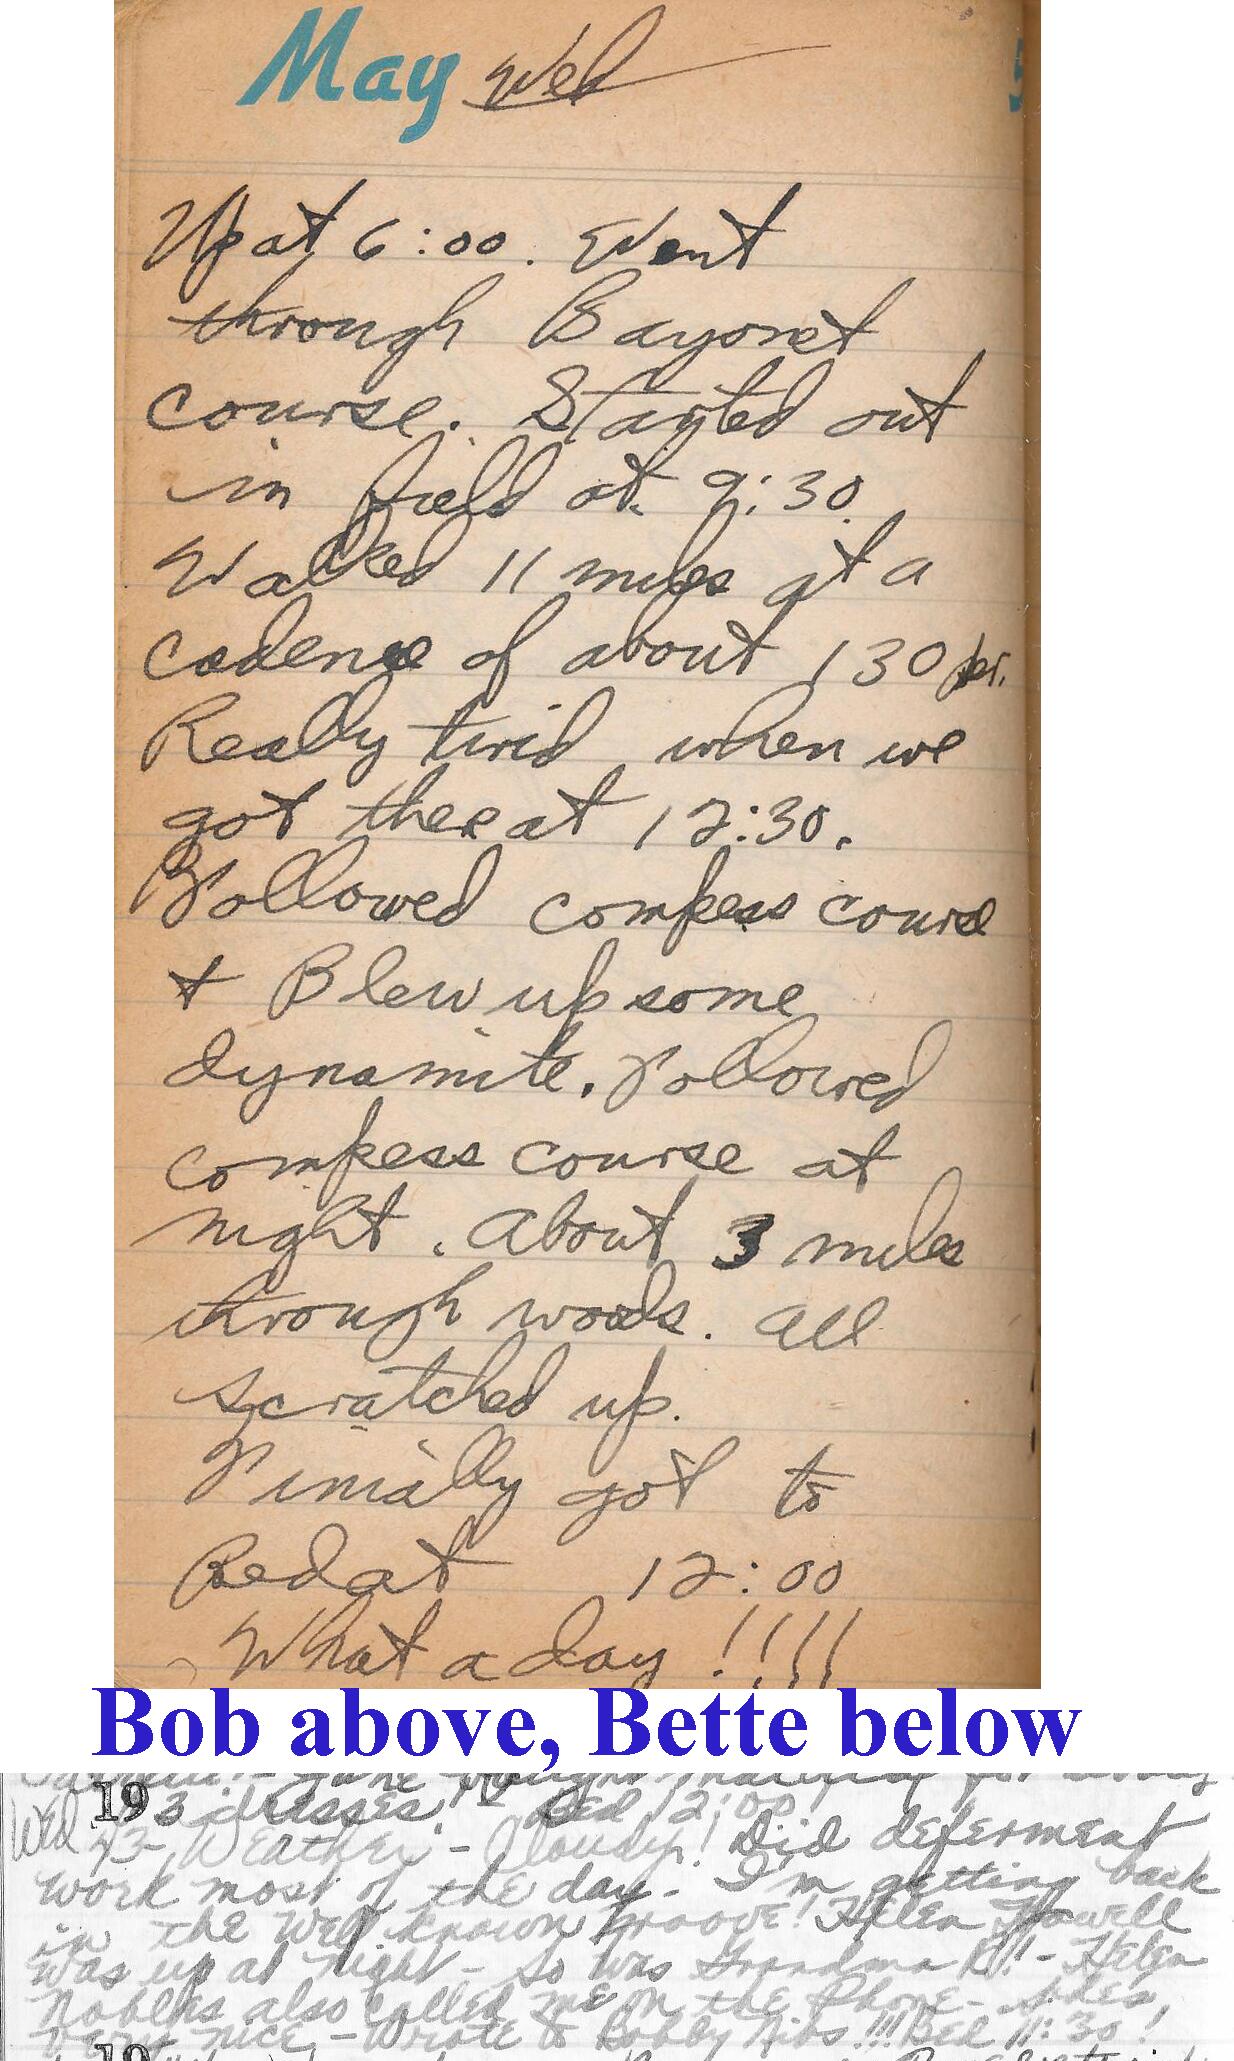 May Wed 5
Up at 6:00. Went
through Bayonet
course. Started out
in field at 9:30.
Walked 11 miles at a
cadence of about 130 per.
Really tired when we
got there at 12:30.
Followed compass course
+ Blew up some
dynamite. Followed
compass course at
night. About 3 miles
through woods. All
scratched up.
Finially got to
Bed at 12:00
What a day !!!!
Bob above, Bette below
19 3 dresses! - Bed 12:00!
Wed 43 Weather - Cloudy! Did deferment
work most of the day - I'm getting back
in the well known groove! Helen Howell
was up at night - so was Grandma K!! - Helen
Nobles also called me on the phone - She's
very nice - Wrote to Bobby Nibs!!! Bed 11:30!
19